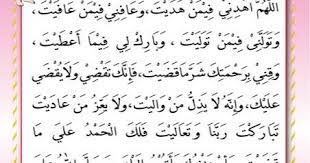 اَللّٰهُمَّ اهْدِنِيْ فِيْمَنْ هَدَيْتَ، وَعَافِنِيْ فِيْمَنْ عَافَيْتَ،
وَتَوَلَّنِيْ فِيْمَنْ تَوَلَّيْتَ ، وَبَارِكْ لِيْ فِيْمَا أَعْطَيْتَ ،
وَقِنِيْ بِرَحْمَتِكَ شَرَّمَاقَضَيْتَ، فَإِنَّكَ تَقْضِيْ وَلَايُقْضَى
عَلَيْكَ، وَإِنَّهُ لَا يَذِلُّ مَنْ وَالَيْتَ، وَلَا يَعِزُّ مَنْ عَادَيْتَ
تَبَارَكْتَ رَبَّنَا وَتَعَالَيْتَ فَلَكَ الْحَمْدُ عَلَى مَا